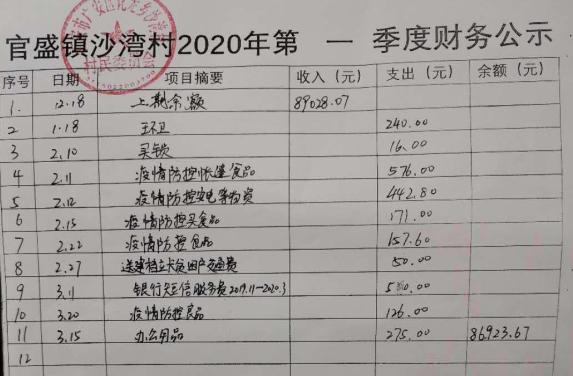 村民委员会
官盛镇沙湾村2020年第 一 季度财务公示
序号 日期 项目摘要 收入（元） 支出（元） 余额（元）
1. 12.18 上期余额 89028.07
2 1.18 环卫 240.00
3 2.10 买锁 16.00
4 2.11 疫情防控帐篷食品 576.00
5 2.12 疫情防控安电等物资 442.80
6 2.15 疫情防控买食品 171.00
7 2.22 疫情防控食品 157.60
8 2.27 送建档立卡贫困户交通费 50.00
9 3.11 银行短信服务费2019.11—2020.3 50.00
10 3.20 疫情防控食品 126.00
11 3.15 办公用品 275.00 86923.67
12